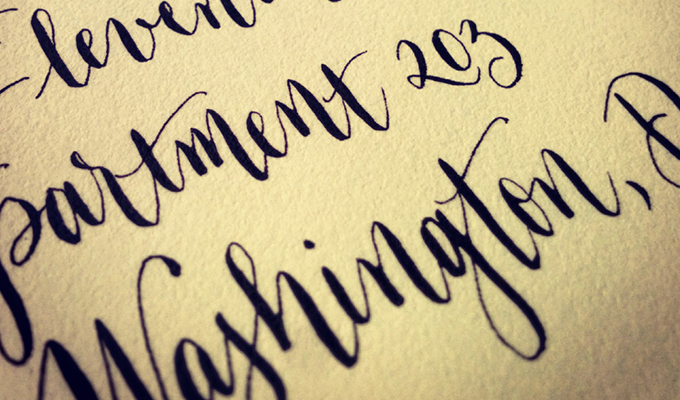 Eleven
partment 203
Washington, D